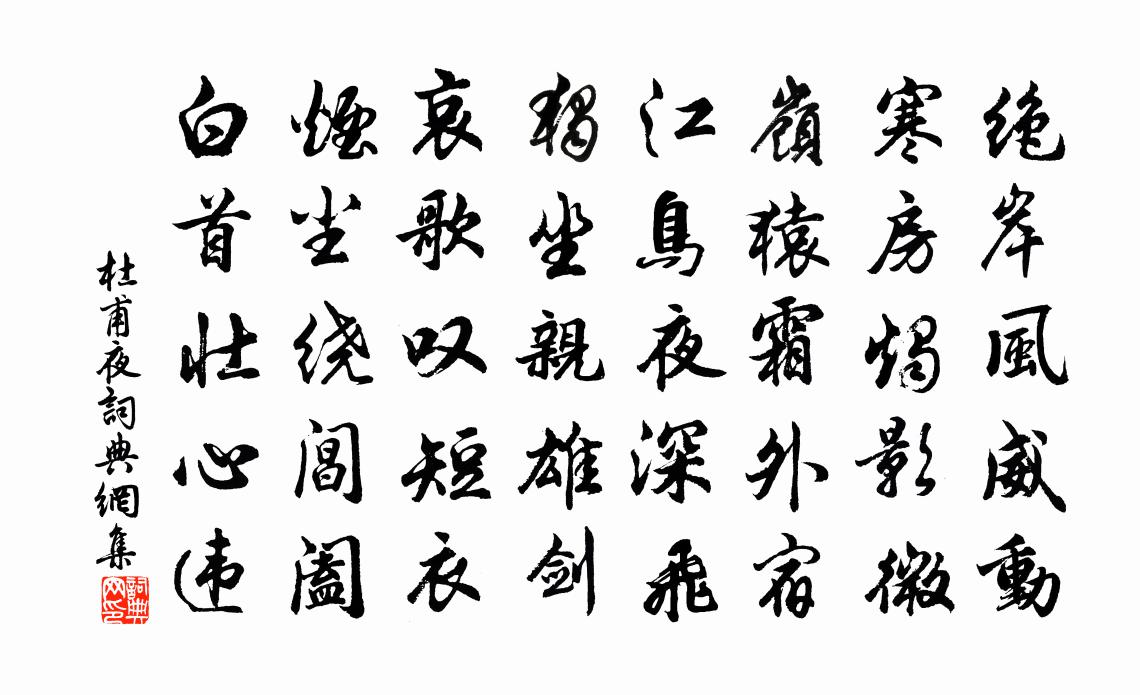 绝岸風威動
寒房燭影微
嶺猿霜外宿
江鳥夜深飛
獨坐親雄剑
哀歌叹短衣
煙尘绕閶阖
白首壮心违
杜甫夜詞典網集
詞典網印